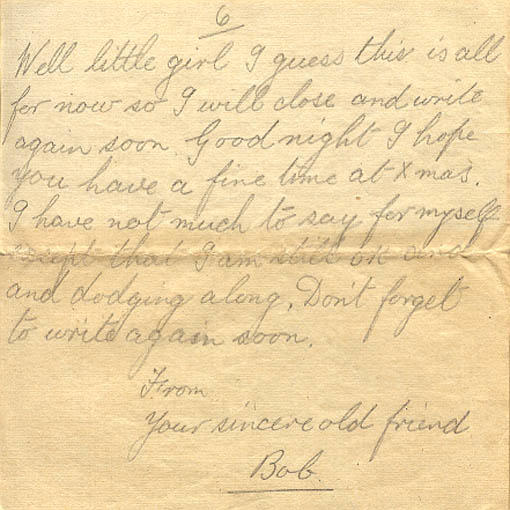 6
Well little girl I guess this is all
for now so I will close and write
again soon. Good night I hope
you have a fine time at Xmas.
I have not much to say for myself
that I am still on
and dodging along. Don't forget
to write again soon.
From
Your sincere old friend
Bob